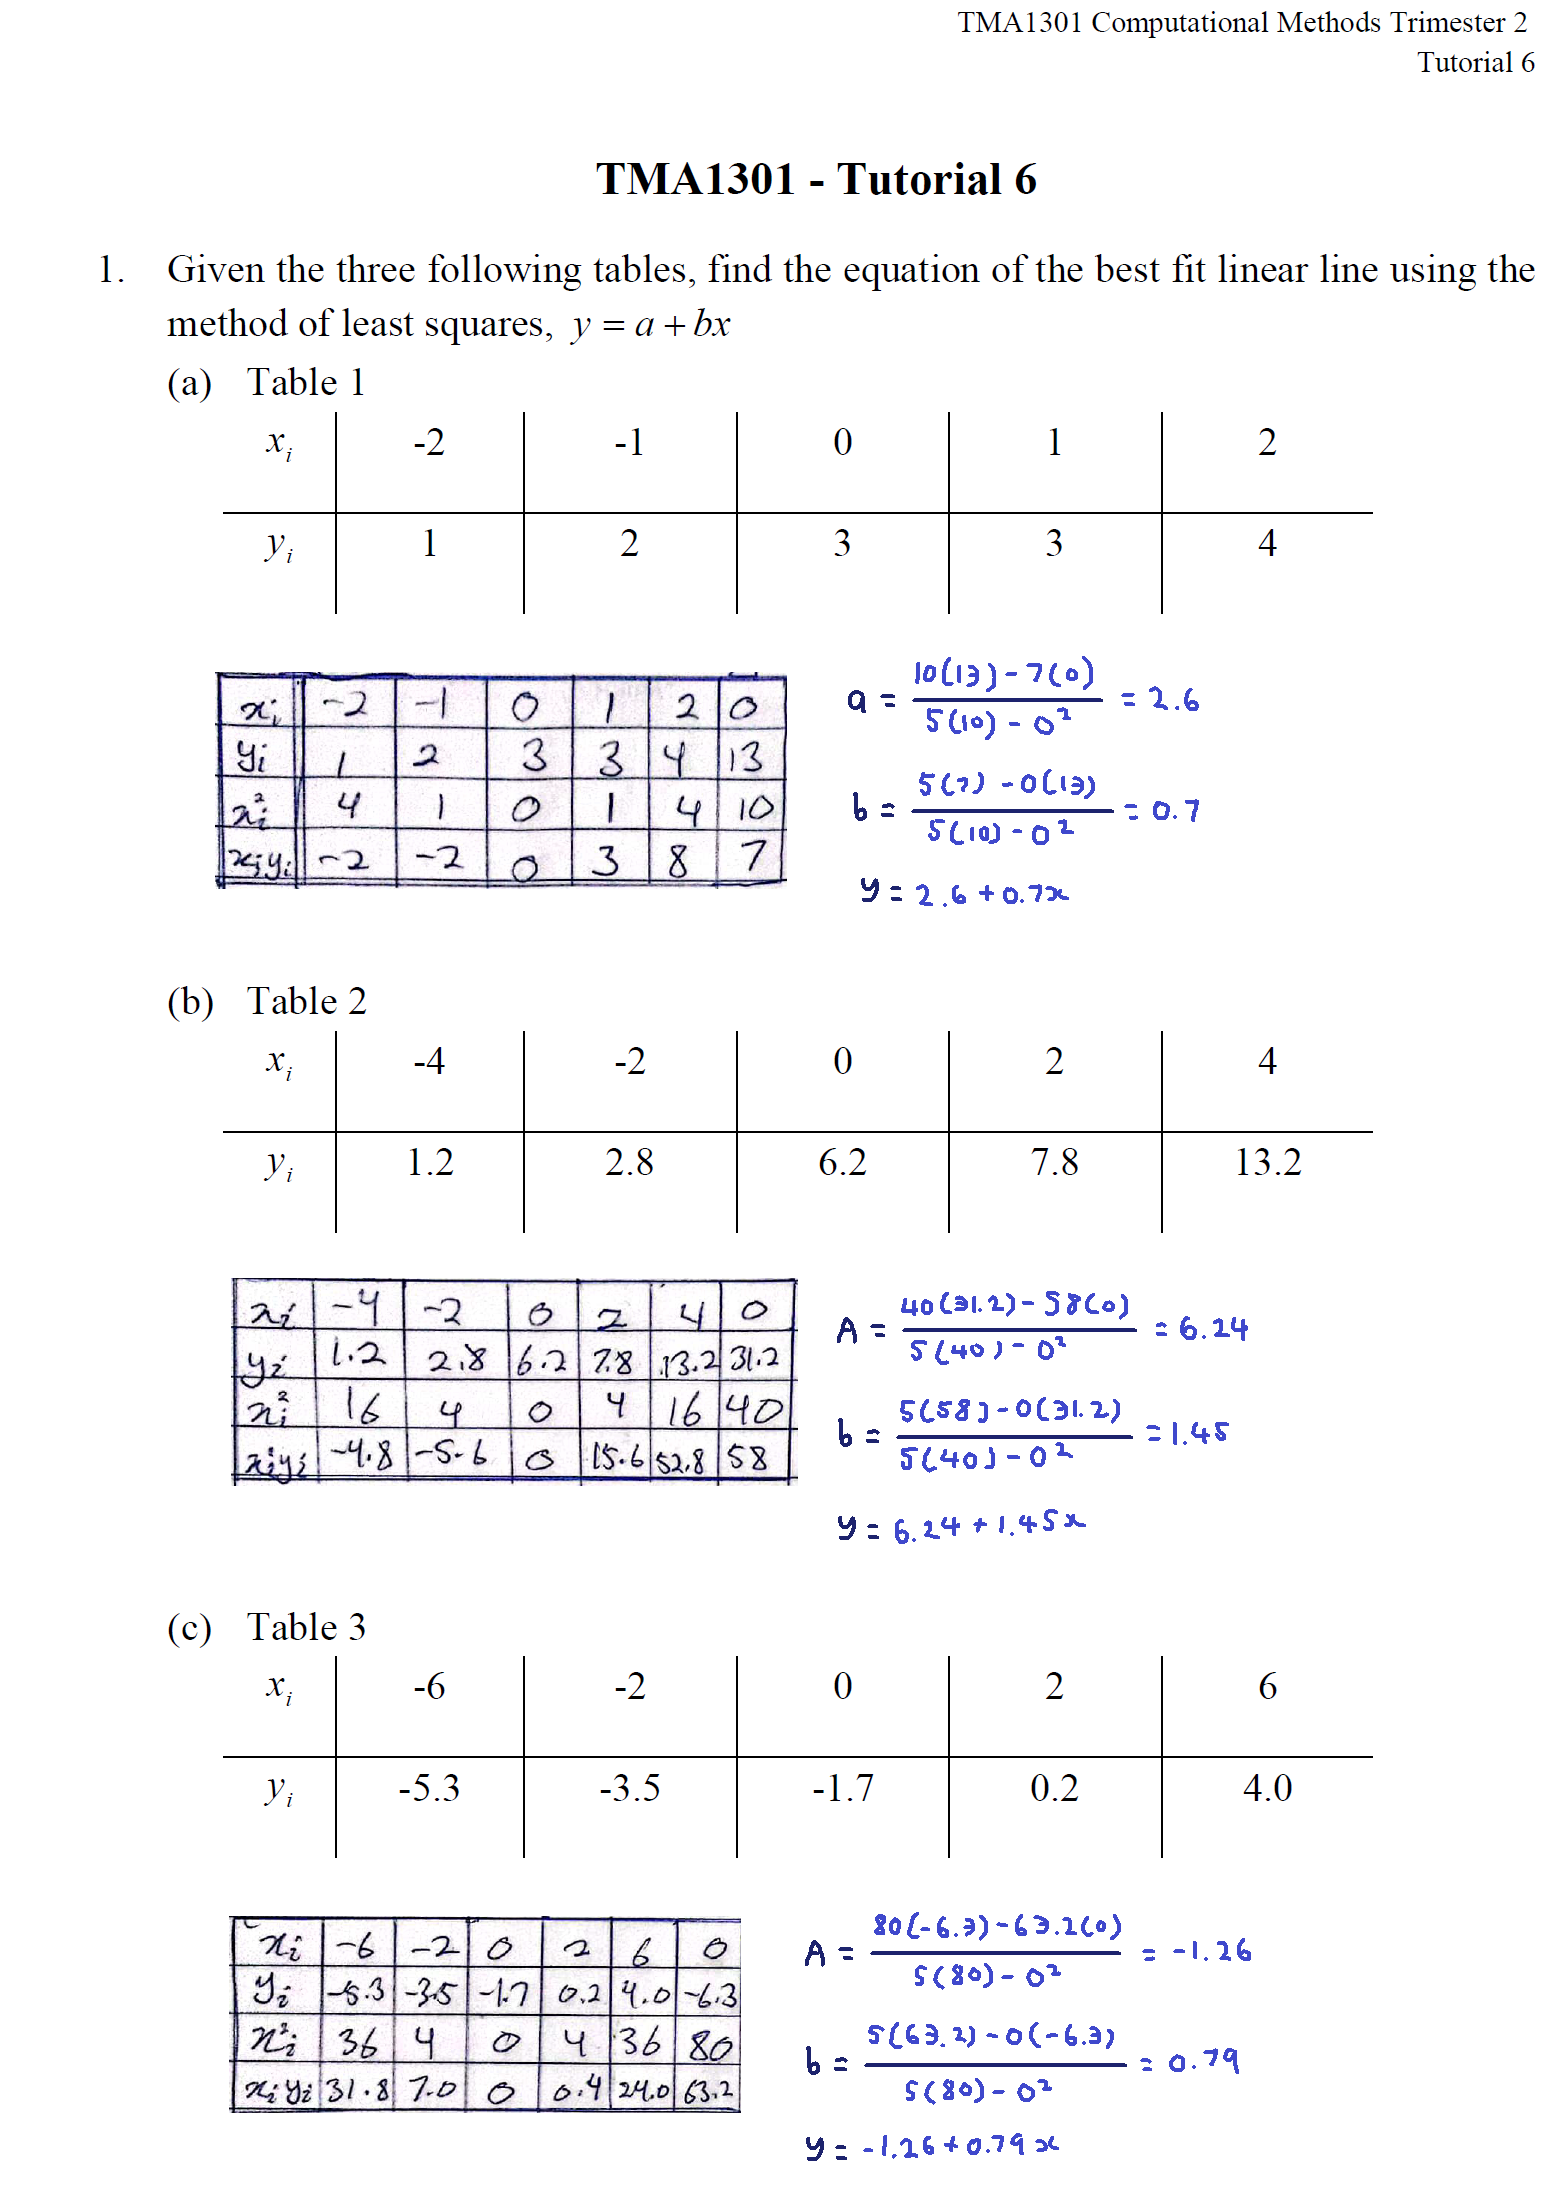 TMA1301 Computational Methods Trimester 2
Tutorial 6
TMA1301 - Tutorial 6
1. Given the three following tables, find the equation of the best fit linear line using the
method of least squares, y = a + bx
(a) Table 1
xᵢ -2 -1 0 1 2
yᵢ 1 2 3 3 4
xᵢ -2 -1 0 1 2 0
yᵢ 1 2 3 3 4 13
xᵢ² 4 1 0 1 4 10
xᵢyᵢ -2 -2 0 3 8 7
a = (10(13) - 7(0)) / (5(10) - 0²) = 2.6
b = (5(7) - 0(13)) / (5(10) - 0²) = 0.7
y = 2.6 + 0.7x
(b) Table 2
xᵢ -4 -2 0 2 4
yᵢ 1.2 2.8 6.2 7.8 13.2
xᵢ -4 -2 0 2 4 0
yᵢ 1.2 2.8 6.2 7.8 13.2 31.2
xᵢ² 16 4 0 4 16 40
xᵢyᵢ -4.8 -5.6 0 15.6 52.8 58
A = (40(31.2) - 58(0)) / (5(40) - 0²) = 6.24
b = (5(58) - 0(31.2)) / (5(40) - 0²) = 1.45
y = 6.24 + 1.45x
(c) Table 3
xᵢ -6 -2 0 2 6
yᵢ -5.3 -3.5 -1.7 0.2 4.0
xᵢ -6 -2 0 2 6 0
yᵢ -5.3 -3.5 -1.7 0.2 4.0 -6.3
xᵢ² 36 4 0 4 36 80
xᵢyᵢ 31.8 7.0 0 0.4 24.0 63.2
A = (80(-6.3) - 63.2(0)) / (5(80) - 0²) = -1.26
b = (5(63.2) - 0(-6.3)) / (5(80) - 0²) = 0.79
y = -1.26 + 0.79x